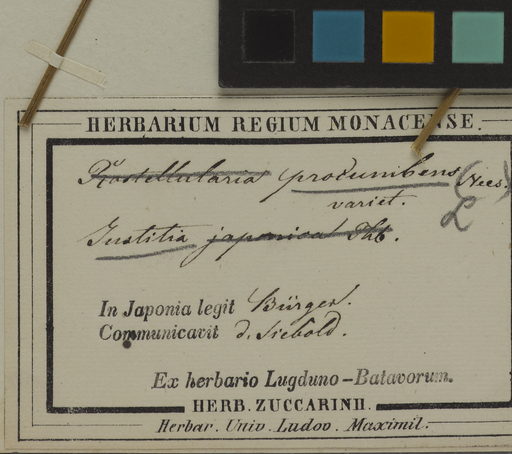 HERBARIUM REGIUM MONACENSE.
Rostellularia procumbens (Nees.)
variet. L
Justitia japonica Thb.
In Japonia legit Bürger.
Communicavit d. Siebold.
Ex herbario Lugduno-Batavorum.
HERB. ZUCCARINII.
Herbar. Univ. Ludov. Maximil.